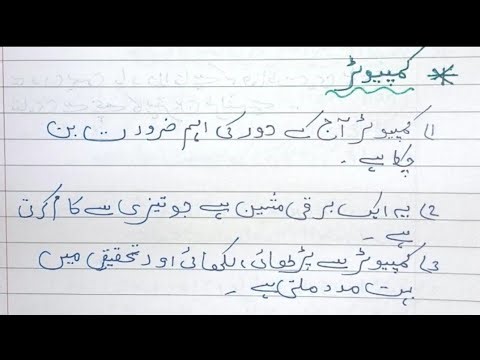 * کمپیوٹر
1) کمپیوٹر آج کے دور کی اہم ضرورت بن
چکا ہے۔
2) یہ ایک برقی مشین ہے جو تیزی سے کام کرتی
ہے۔
3) کمپیوٹر سے پڑھائی، لکھائی اور تحقیق میں
بہت مدد ملتی ہے۔